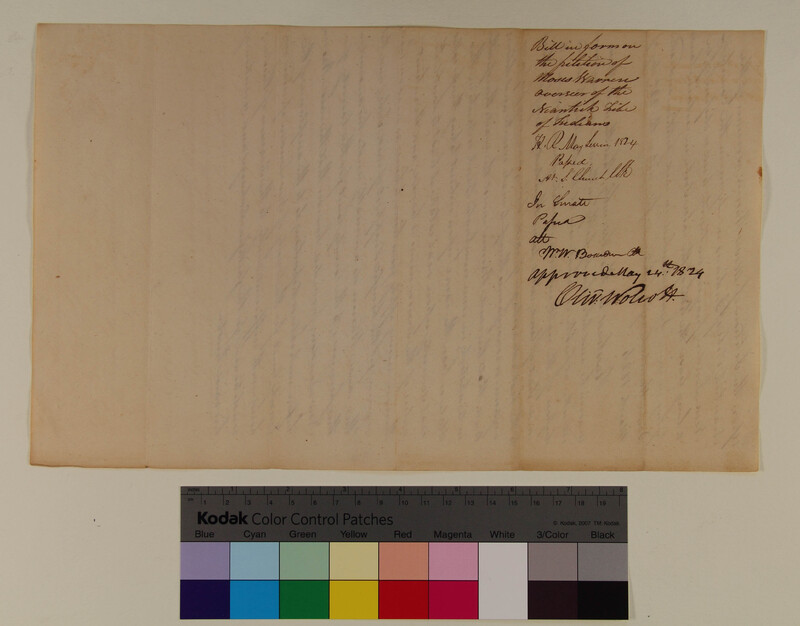 Bill in form on
the petition of
Moses Warren
overseer of the
Niantick Tribe
of Indians
H. R. May Sessn 1824
Passed.
At. S. Church Clk
In Senate
Passed
att
Wm. W. Boardman Clk
Approved May 24th. 1824
Oliv. Wolcott.
Inches 1 2 3 4 5 6 7 8
cm 1 2 3 4 5 6 7 8 9 10 11 12 13 14 15 16 17 18 19
Kodak Color Control Patches
© Kodak, 2007 TM: Kodak
Blue Cyan Green Yellow Red Magenta White 3/Color Black